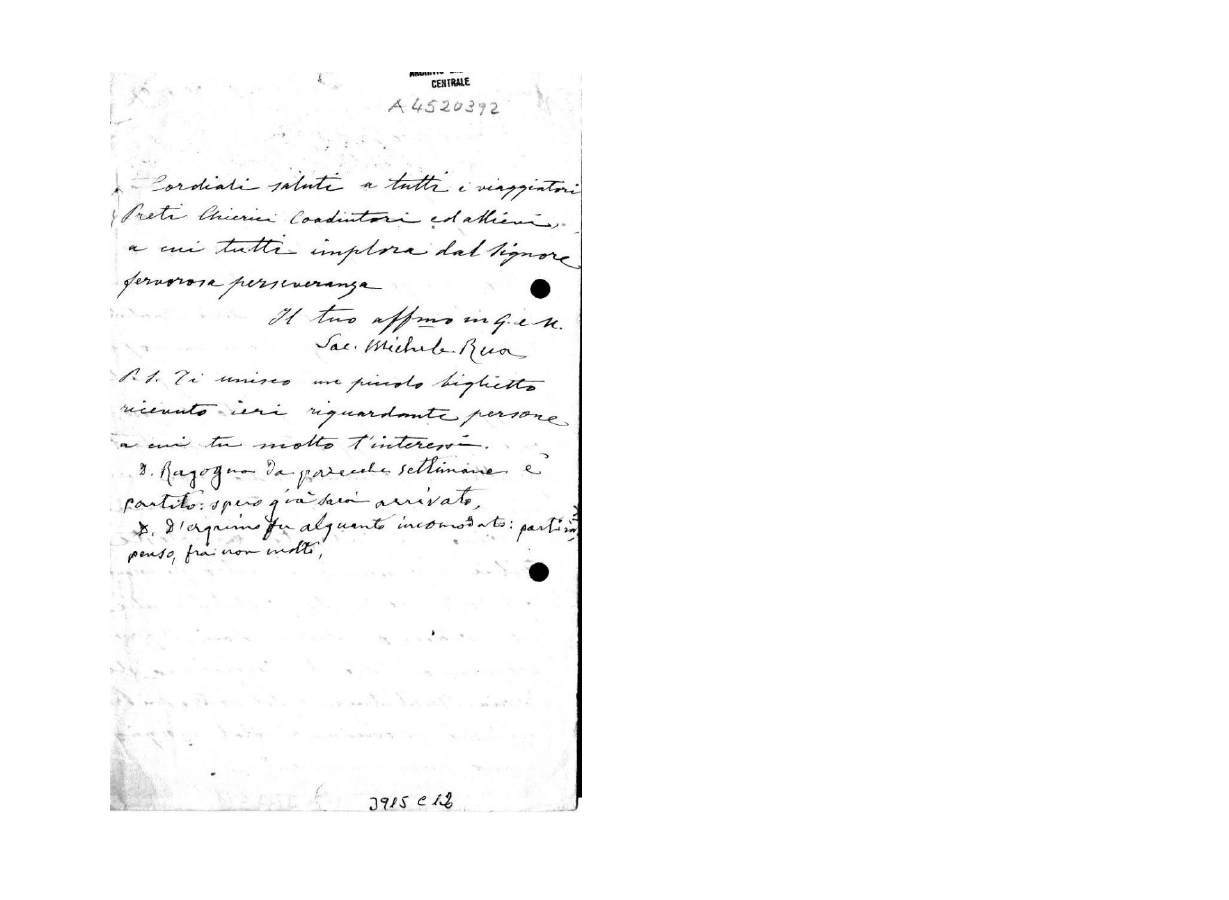 CENTRALE
A4520392
Cordiali saluti a tutti i viaggiatori
Preti Chierici Coadiutori ed allievi,
a cui tutti implora dal Signore
fervorosa perseveranza
Il tuo affmo in G. e M.
Sac. Michele Rua
P.S. Ti unisco un piccolo biglietto
ricevuto ieri riguardante persone
a cui tu molto t'interessi.
D. Ragogna da parecchie settimane è
partito: spero già sarà arrivato,
D. fu alquanto incomodato: partirà,
penso, fra non molto,
3915 C 12